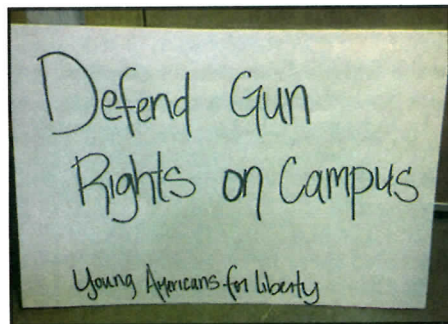 Defend Gun
Rights on Campus
Young Americans for Liberty